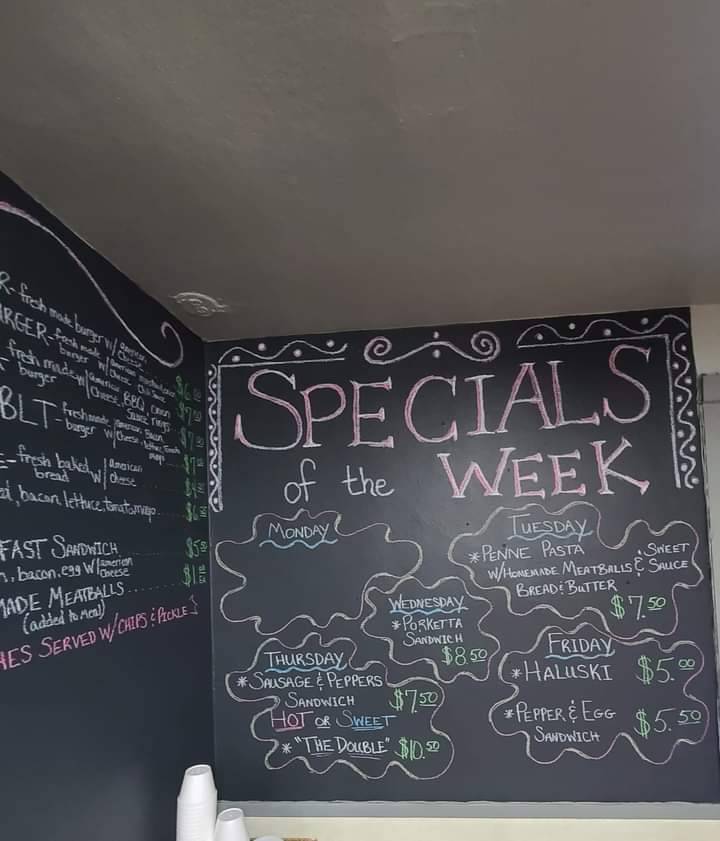 SPECIALS
of the WEEK
MONDAY
TUESDAY
*PENNE PASTA
W/HOMEMADE MEATBALLS & SWEET SAUCE
BREAD & BUTTER
$7.50
WEDNESDAY
*PORKETTA
SANDWICH
$8.50
THURSDAY
*SAUSAGE & PEPPERS
SANDWICH $7.50
HOT OR SWEET
*"THE DOUBLE" $10.50
FRIDAY
*HALUSKI $5.00
*PEPPER & EGG $5.50
SANDWICH
R-fresh made burger w/ american cheese
RGER-fresh made burger w/ american
fresh made burger w/ american cheese, BBQ, onion rings
BLT-fresh made burger w/ american cheese, bacon
E-fresh baked bread w/ american cheese
ed, bacon, lettuce, tomato, mayo
FAST SANDWICH
n, bacon, egg w/ american cheese
MADE MEATBALLS
(added to meal)
HES SERVED W/ CHIPS & PICKLE